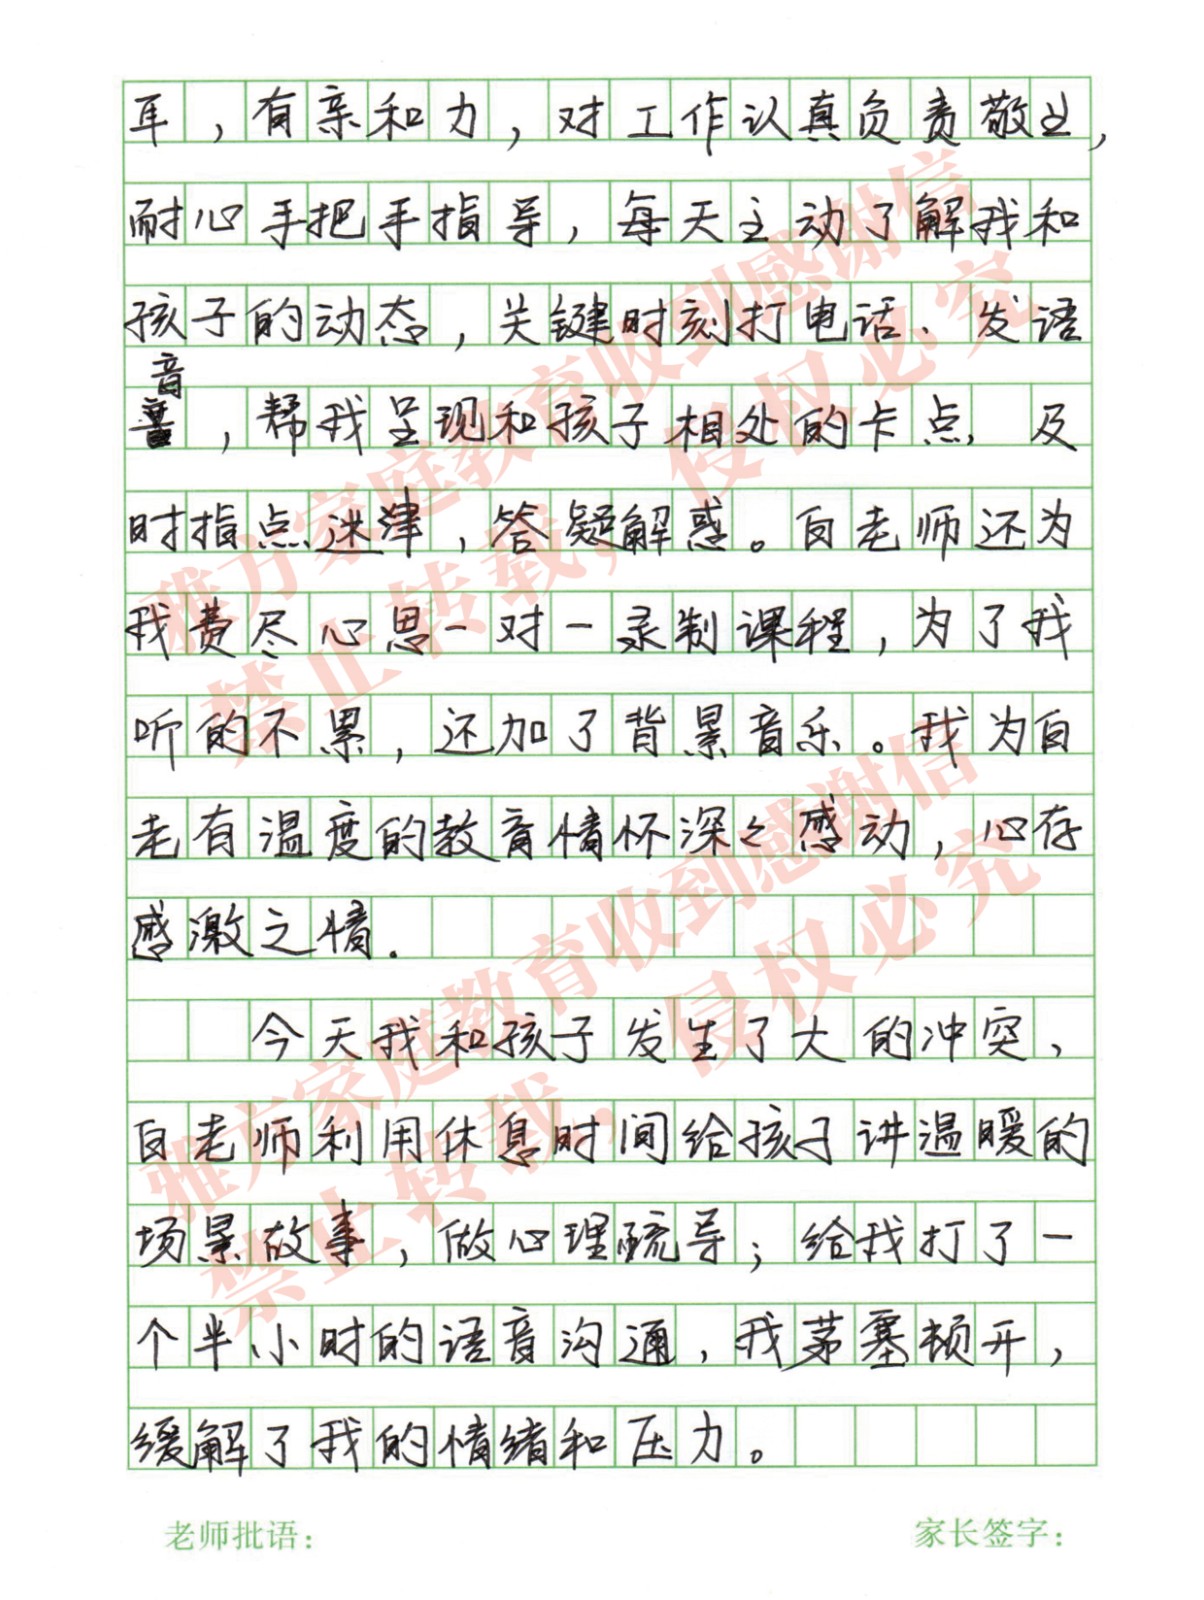 耳，有亲和力，对工作认真负责敬业，
耐心手把手指导，每天主动了解我和
孩子的动态，关键时刻打电话、发语
音
，帮我呈现和孩子相处的卡点，及
时指点迷津，答疑解惑。白老师还为
我费尽心思一对一录制课程，为了我
听的不累，还加了背景音乐。我为白
老有温度的教育情怀深々感动，心存
感激之情.
今天我和孩子发生了大的冲突，
白老师利用休息时间给孩子讲温暖的
场景故事，做心理疏导；给我打了一
个半小时的语音沟通，我茅塞顿开，
缓解了我的情绪和压力。
老师批语：
家长签字：
雅方家庭教育收到感谢信
禁止转载，侵权必究
雅方家庭教育收到感谢信
禁止转载，侵权必究